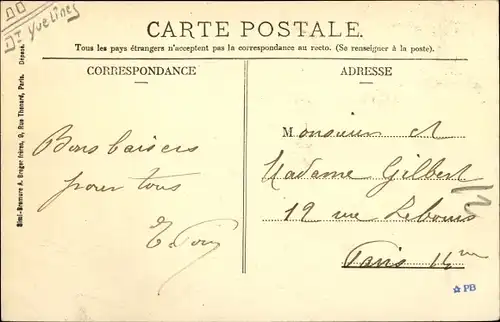 Yvelines
CARTE POSTALE.
Tous les pays étrangers n'acceptent pas la correspondance au recto. (Se renseigner à la poste).
CORRESPONDANCE
ADRESSE
Simi-Bromure A. Breger frères, 9, Rue Thénard, Paris. Déposé.
Bons baisers
pour tous
Monsieur et
Madame Gilbert
19 rue Lebouis
Paris 14me
PB